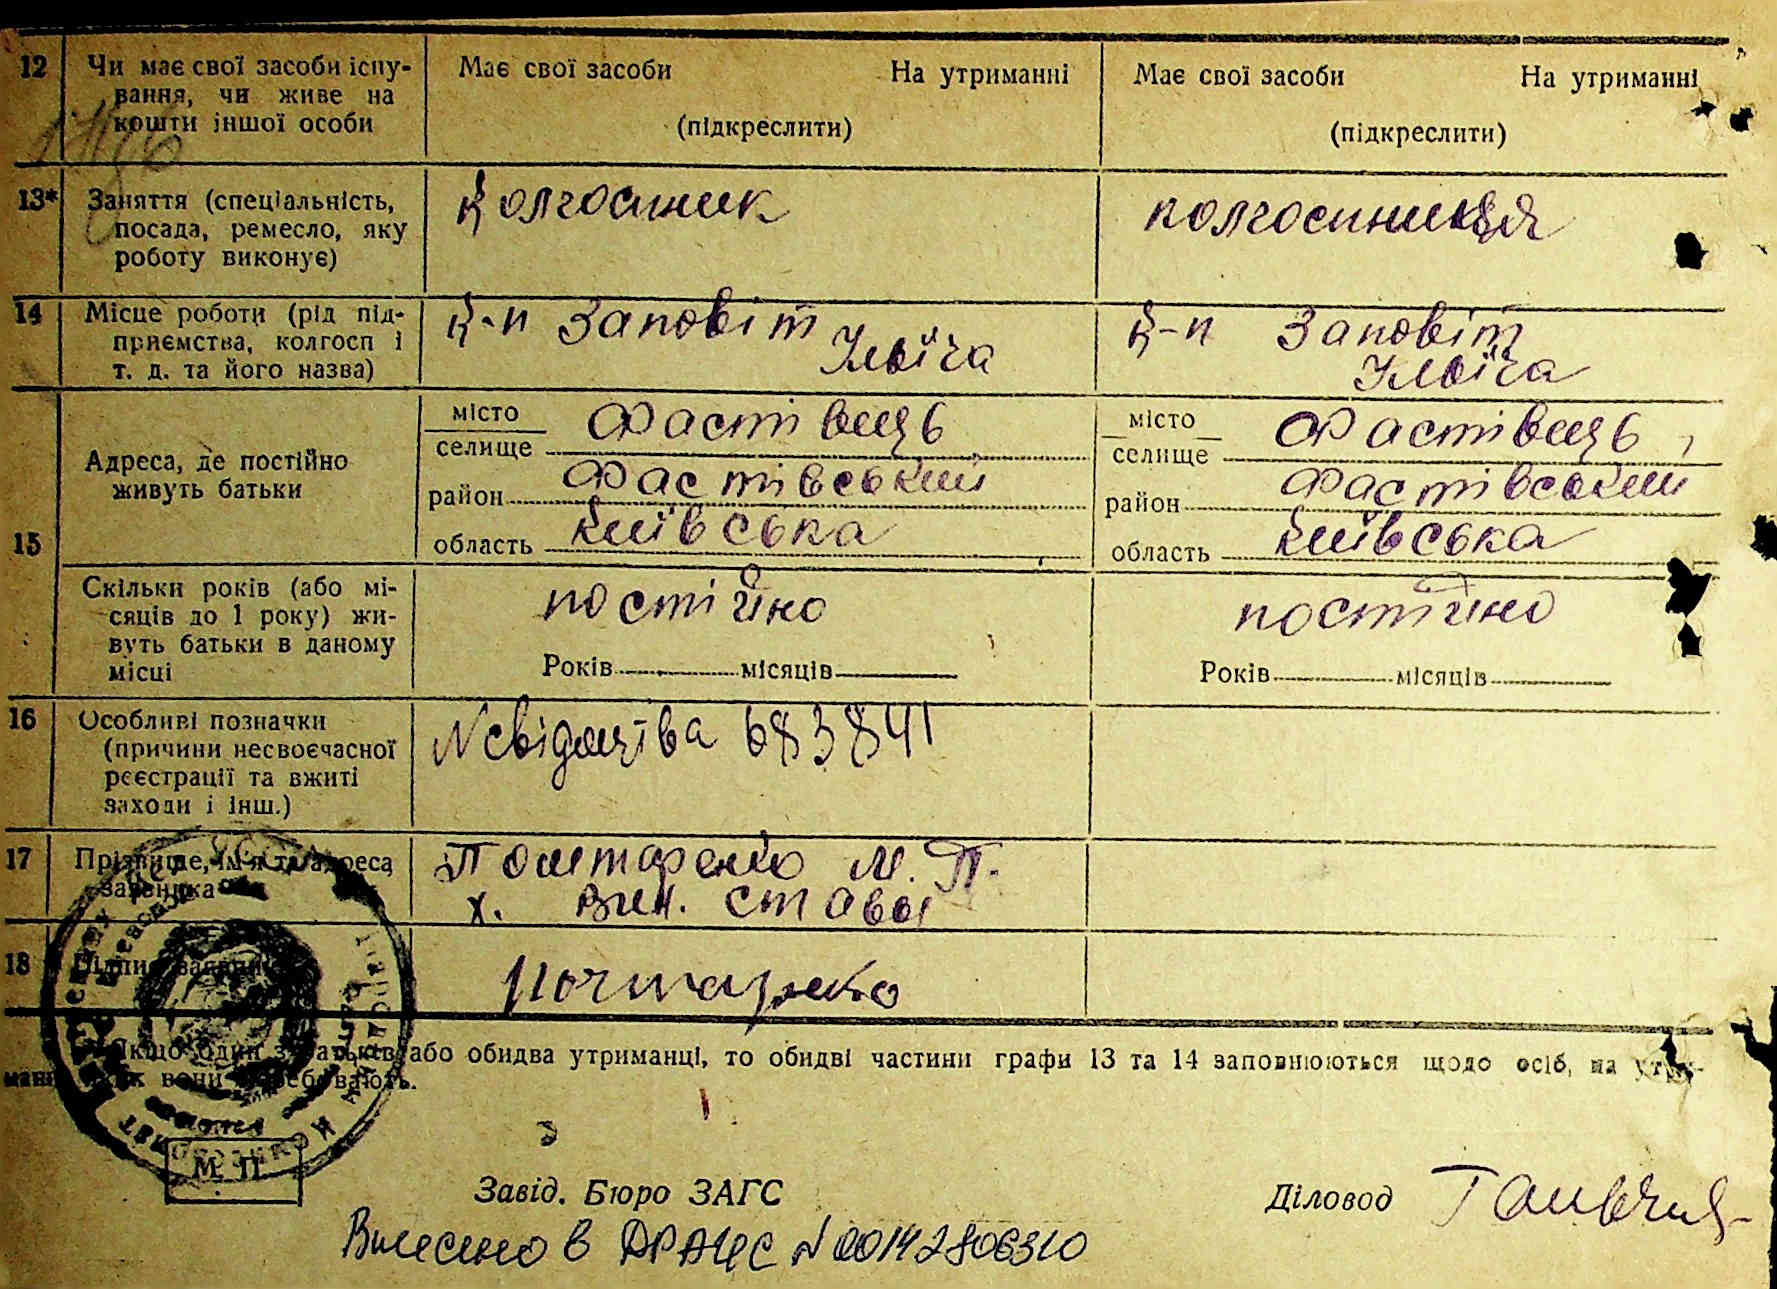 12 Чи має свої засоби існу-
вання, чи живе на
кошти іншої особи
Має свої засоби На утриманні
(підкреслити)
Має свої засоби На утриманні
(підкреслити)
13* Заняття (спеціальність,
посада, ремесло, яку
роботу виконує)
Колгоспник
колгоспниця
14 Місце роботи (рід під-
приємства, колгосп і
т. д. та його назва)
к-п Заповіт
Ілліча
к-п Заповіт
Ілліча
15 Адреса, де постійно
живуть батьки
місто
селище Фастівець
район Фастівський
область Київська
місто
селище Фастівець
район Фастівський
область Київська
Скільки років (або мі-
сяців до 1 року) жи-
вуть батьки в даному
місці
постійно
Років місяців
постійно
Років місяців
16 Особливі позначки
(причини несвоєчасної
реєстрації та вжиті
заходи і інш.)
N свідоцтва 683841
17 Прізвище, ім'я та адреса
заявника
Поштаренко М. П.
х. Вин. Стави
18 Підпис заявника
Почтаренко
Якщо один з батьків або обидва утриманці, то обидві частини графи 13 та 14 заповнюються щодо осіб, на утри-
манні яких вони перебувають.
М. П.
Завід. Бюро ЗАГС
Діловод
Внесено в ДРАЦС N 00142806310